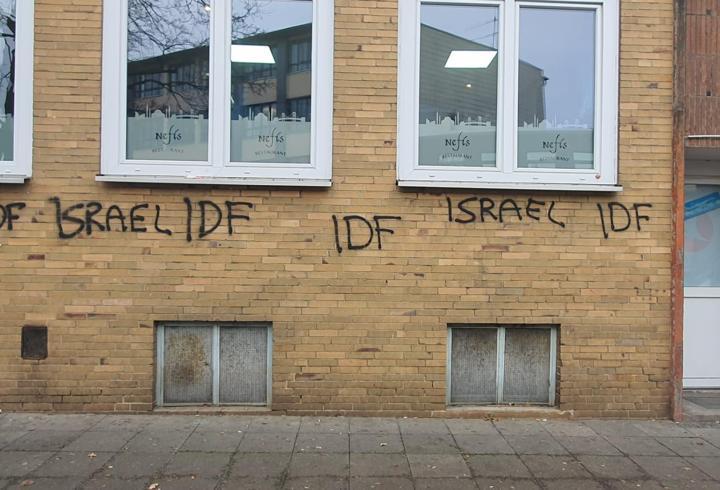 Nefis
RESTAURANT
Nefis
RESTAURANT
Nefis
RESTAURANT
Nefis
RESTAURANT
DF ISRAEL IDF IDF ISRAEL IDF